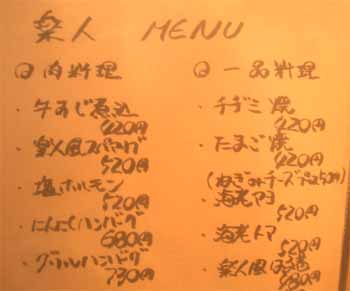 楽人 MENU
◎肉料理
・牛すじ煮込
420円
・楽人風スパサラ
520円
・塩ホルモン
520円
・にんにくハンバーグ
680円
・グリルハンバーグ
730円
◎一品料理
・チヂミ焼
420円
・たまご焼
420円
・海老マヨ
520円
・海老トマ
520円
・楽人風
580円